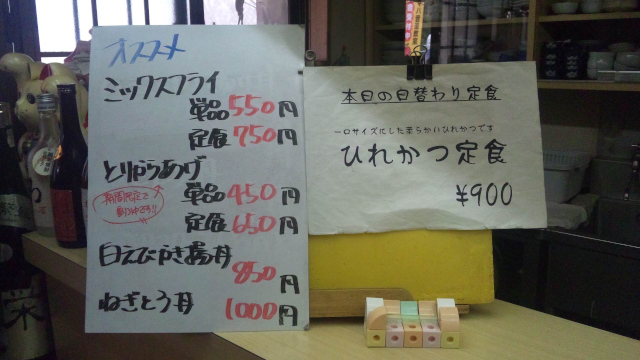 オススメ
ミックスフライ
単品 550円
定食 750円
とりからあげ
単品 450円
定食 650円
期間限定で
白えびかき揚丼
850円
ねぎとろ丼
1000円
本日の日替わり定食
一口サイズにした柔らかいひれかつです
ひれかつ定食
¥900